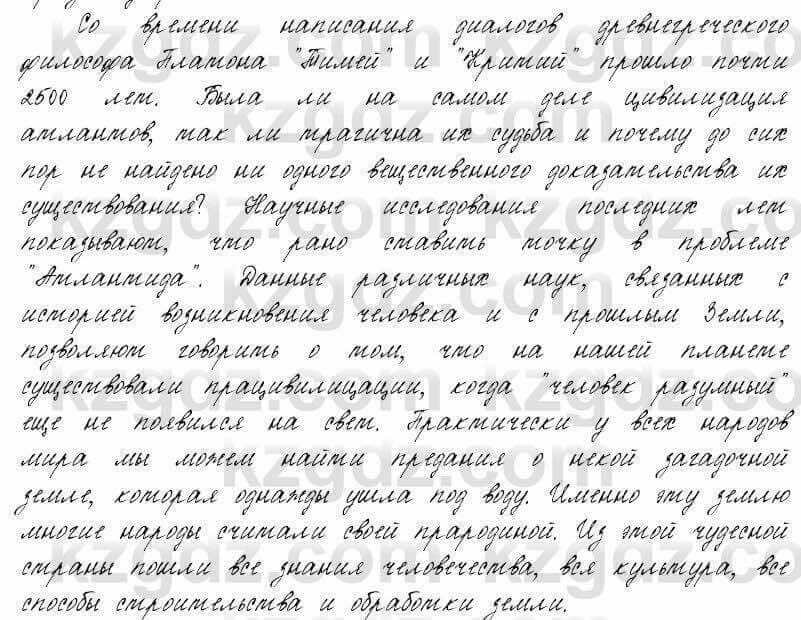 Со времени написания диалогов древнегреческого
философа Платона "Тимей" и "Критий" прошло почти
2500 лет. Была ли на самом деле цивилизация
атлантов, так ли трагична их судьба и почему до сих
пор не найдено ни одного вещественного доказательства их
существования? Научные исследования последних лет
показывают, что рано ставить точку в проблеме
"Атлантида". Данные различных наук, связанных с
историей возникновения человека и с прошлым Земли,
позволяют говорить о том, что на нашей планете
существовали працивилицации, когда "человек разумный"
еще не появился на свет. Практически у всех народов
мира мы можем найти предания о некой загадочной
земле, которая однажды ушла под воду. Именно эту землю
многие народы считали своей прародиной. Из этой чудесной
страны пошли все знания человечества, вся культура, все
способы строительства и обработки земли.
kzgdz.com